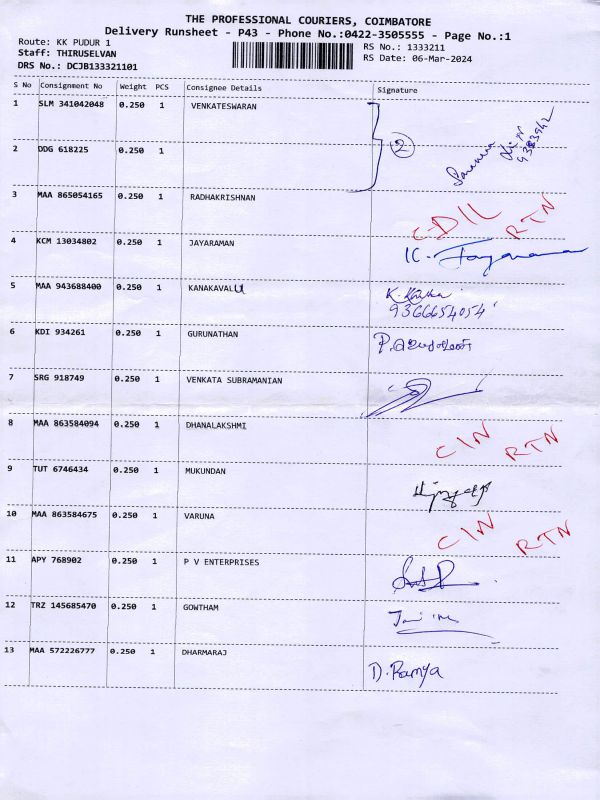 THE PROFESSIONAL COURIERS, COIMBATORE
Delivery Runsheet - P43 - Phone No.:0422-3505555 - Page No.:1
Route: KK PUDUR 1 RS No.: 1333211
Staff: THIRUSELVAN RS Date: 06-Mar-2024
DRS No.: DCJB133321101
S No Consignment No Weight PCS Consignee Details Signature
1 SLM 341042048 0.250 1 VENKATESWARAN
2
2 DDG 618225 0.250 1
3 MAA 865054165 0.250 1 RADHAKRISHNAN RTN
4 KCM 13034802 0.250 1 JAYARAMAN
5 MAA 943688400 0.250 1 KANAKAVALU
9366654054
6 KDI 934261 0.250 1 GURUNATHAN
7 SRG 918749 0.250 1 VENKATA SUBRAMANIAN
8 MAA 863584094 0.250 1 DHANALAKSHMI CIN RTN
9 TUT 6746434 0.250 1 MUKUNDAN
10 MAA 863584675 0.250 1 VARUNA CIN RTN
11 APY 768902 0.250 1 P V ENTERPRISES
12 TRZ 145685470 0.250 1 GOWTHAM
13 MAA 572226777 0.250 1 DHARMARAJ D. Ramya